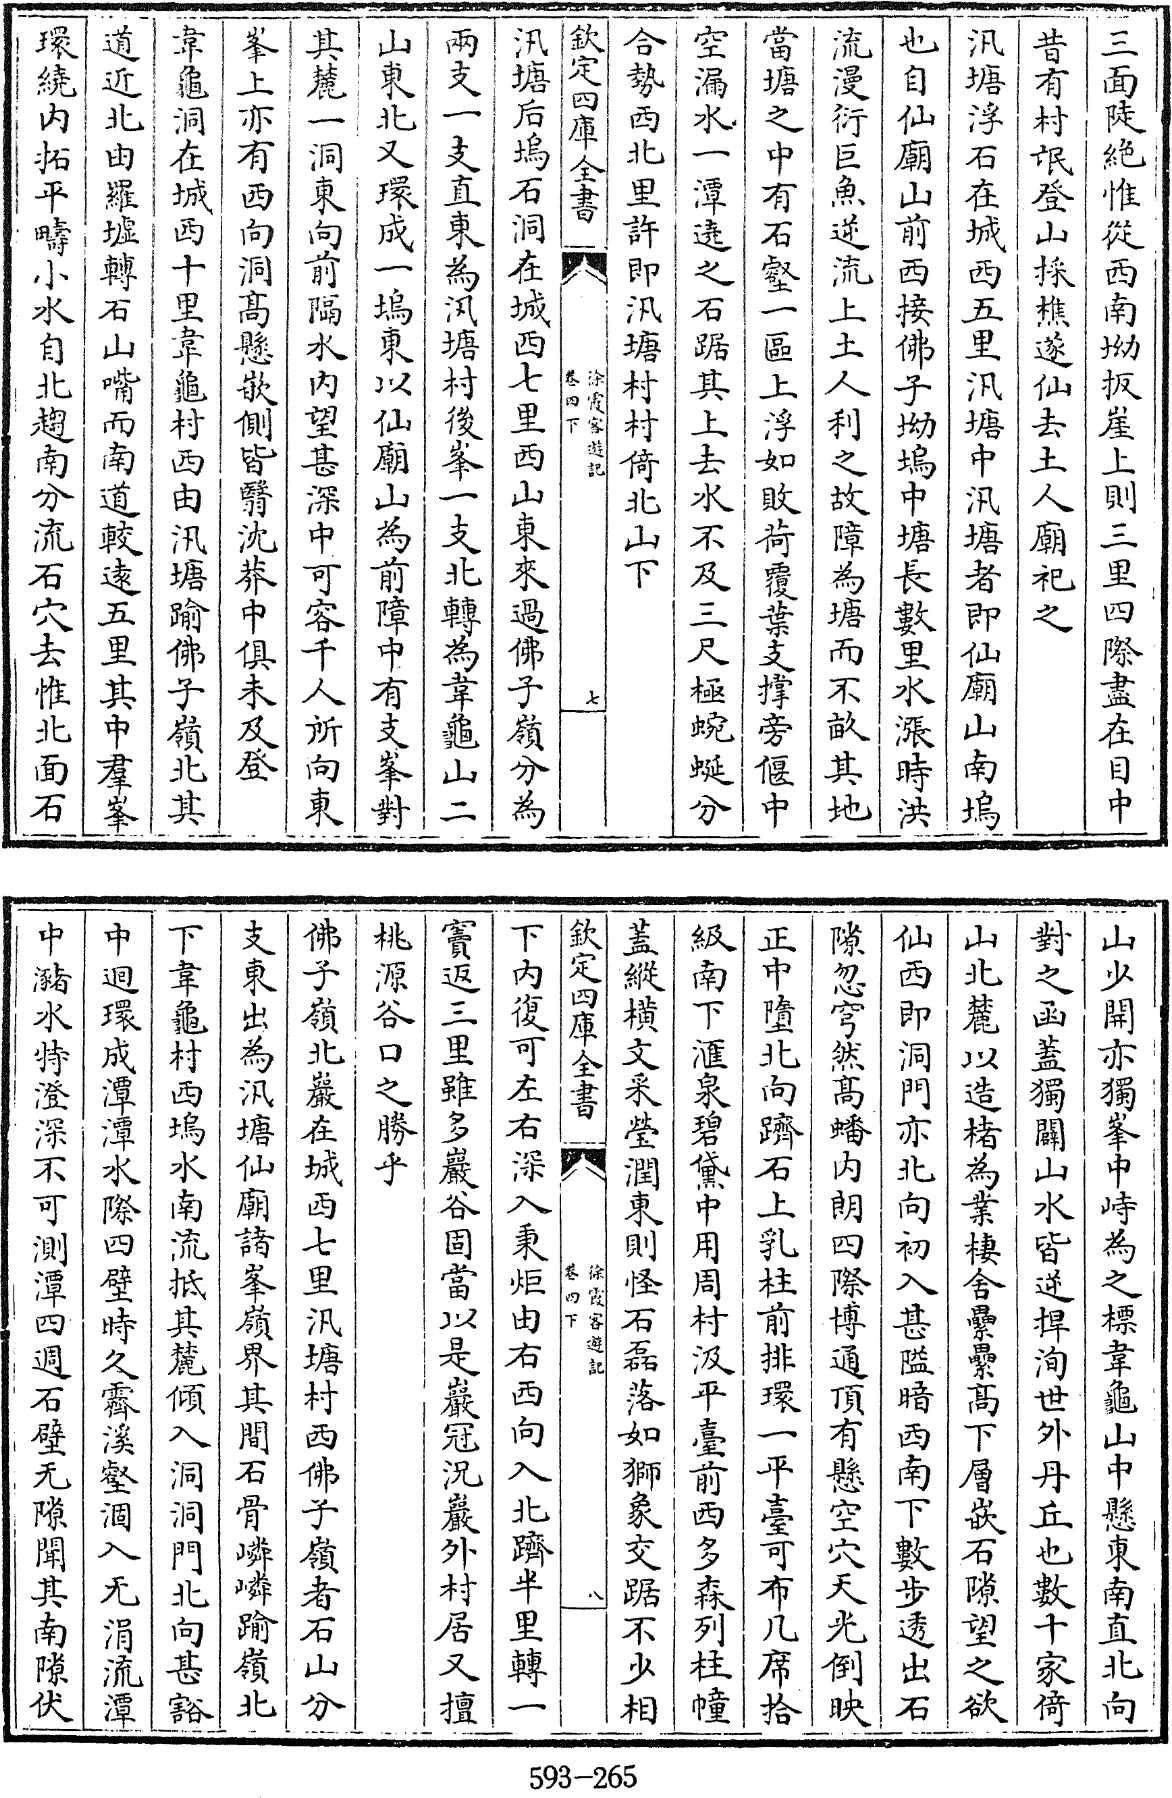 三面陡絶惟從西南坳扳崖上則三里四際盡在目中
昔有村氓登山採樵遂仙去土人廟祀之
汛塘浮石在城西五里汛塘中汛塘者即仙廟山南塢
也自仙廟山前西接佛子坳塢中塘長數里水漲時洪
流漫衍巨魚逆流上土人利之故障為塘而不畝其地
當塘之中有石壑一區上浮如敗荷覆葉支撑旁偃中
空漏水一潭遶之石踞其上去水不及三尺極蜿蜒分
合勢西北里許即汛塘村村倚北山下
欽定四庫全書
徐霞客遊記
卷四下
七
汛塘后塢石洞在城西七里西山東來過佛子嶺分為
兩支一支直東為汛塘村後峯一支北轉為韋龜山二
山東北又環成一塢東以仙廟山為前障中有支峯對
其麓一洞東向前隔水内望甚深中可容千人所向東
峯上亦有西向洞髙懸嵌側皆翳沈莽中俱未及登
韋龜洞在城西十里韋龜村西由汛塘踰佛子嶺北其
道近北由羅墟轉石山嘴而南道較逺五里其中羣峯
環繞内拓平疇小水自北趨南分流石穴去惟北面石
山少開亦獨峯中峙為之標韋龜山中懸東南直北向
對之函蓋獨闢山水皆逆捍洵世外丹丘也數十家倚
山北麓以造楮為業棲舍纍纍髙下層嵌石隙望之欲
仙西即洞門亦北向初入甚隘暗西南下數步透出石
隙忽穹然髙蟠内朗四際博通頂有懸空穴天光倒映
正中墮北向躋石上乳柱前排環一平臺可布几席拾
級南下滙泉碧黛中用周村汲平臺前西多森列柱幢
蓋縱横文采瑩潤東則怪石磊落如獅象交踞不少相
欽定四庫全書
徐霞客遊記
卷四下
八
下内復可左右深入秉炬由右西向入北躋半里轉一
竇返三里雖多巖谷固當以是巖冠況巖外村居又擅
桃源谷口之勝乎
佛子嶺北巖在城西七里汛塘村西佛子嶺者石山分
支東出為汛塘仙廟諸峯嶺界其間石骨嶙嶙踰嶺北
下韋龜村西塢水南流抵其麓傾入洞洞門北向甚豁
中迴環成潭潭水際四壁時久霽溪壑涸入无涓流潭
中瀦水特澄深不可測潭四週石壁无隙聞其南隙伏
593-265